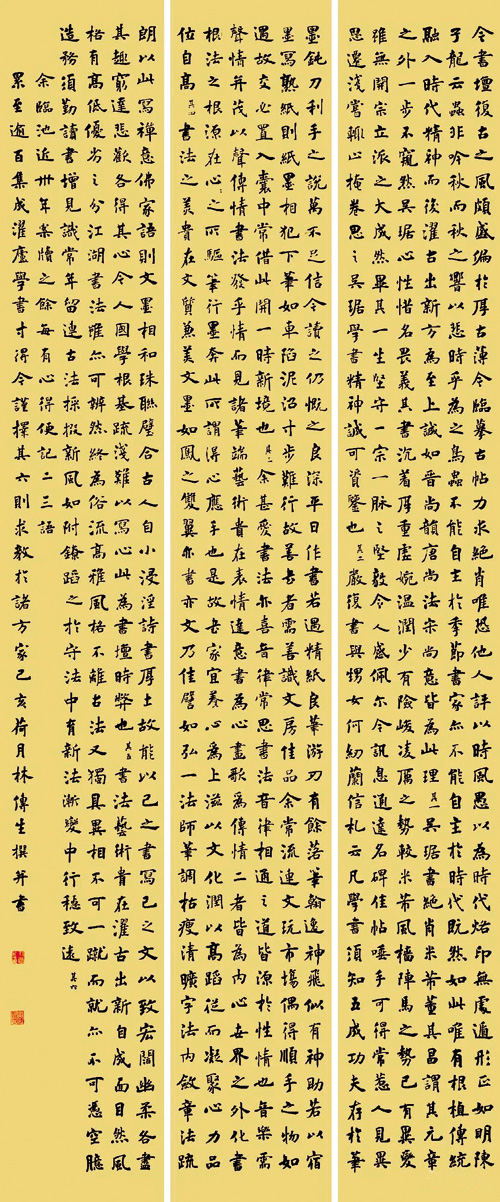 今書壇復古之風頗盛偏於厚古薄今臨摹古帖力求絕肖唯恐他人評以時風愚以為時代烙印無處遁形正如明陳
子龍云蟲非吟秋而秋之響以悲時乎為之鳥蟲不能自主於季節書家亦不能自主於時代既然如此唯有根植傳統
融入時代精神而後濯古出新方為至上誠如晉尚韻唐尚法宋尚意皆為此理其一吳琚書絕肖米芾董其昌謂其元章
之外一步不窺然吳琚心性惜名畏義其書沉着厚重虛婉溫潤少有險峻凌厲之勢較米芾風檣陣馬之勢已有異爱
雖無開宗立派之大成然畢其一生堅守一宗一脈之堅毅令人感佩尔今訊息通達名碑佳帖唾手可得常惹人見異
思遷淺嘗輒止掩卷思之吳琚學書精神誠可資鑒也其二嚴復書與甥女何紉蘭信札云凡學書須知五成功夫存於筆
墨鈍刀利手之說萬不足信今讀之仍慨之良深平日作書若遇精紙良筆游刃有餘落筆翰逸神飛似有神助若以宿
墨寫熟紙則紙墨相犯下筆如車陷泥沼寸步難行故善書者需善識文房佳品余常流連文玩市場偶得順手之物如
遇故交必置入囊中常借此開一時新境也其三余甚愛書法亦喜音律常思書法音律相通之道皆源於性情也音樂需
聲情并茂以聲傳情書法發乎情而見諸筆端藝術貴在表情達意書為心畫歌為傳情二者皆為內心世界之外化書
根法之根源在心心之所驅筆行墨奔此所謂得心應手也是故書家宜養心為上滋以文化潤以高蹈從而凝聚心力品
位自高其四書法之美貴在文質兼美文墨如鳳之雙翼尔書亦文乃佳譬如弘一法師筆調枯瘦清曠字法內斂章法疏
朗以此寫禪意佛家語則文墨相和珠聯璧合古人自小浸淫詩書厚土故能以己之書寫己之文以致宏闊幽柔各盡
其趣窮達悲歡各得其心今人國學根基疏淺難以寫心此為書壇時弊也其五書法藝術貴在濯古出新自成面目然風
格有高低優劣之分江湖書法雖亦可辨然終為俗流高雅風格不離古法又獨具異相不可一蹴而就亦不可憑空臆
造務須勤讀書增見識常年留連古法採擷新風如附鐐蹈之於守法中有新法漸變中行穩致遠其六
余臨池近卅年案牘之餘每有心得便記二三語
累至逾百集成濯廬學書寸得今謹擇其六則求教於諸方家己亥荷月林傳生撰并書